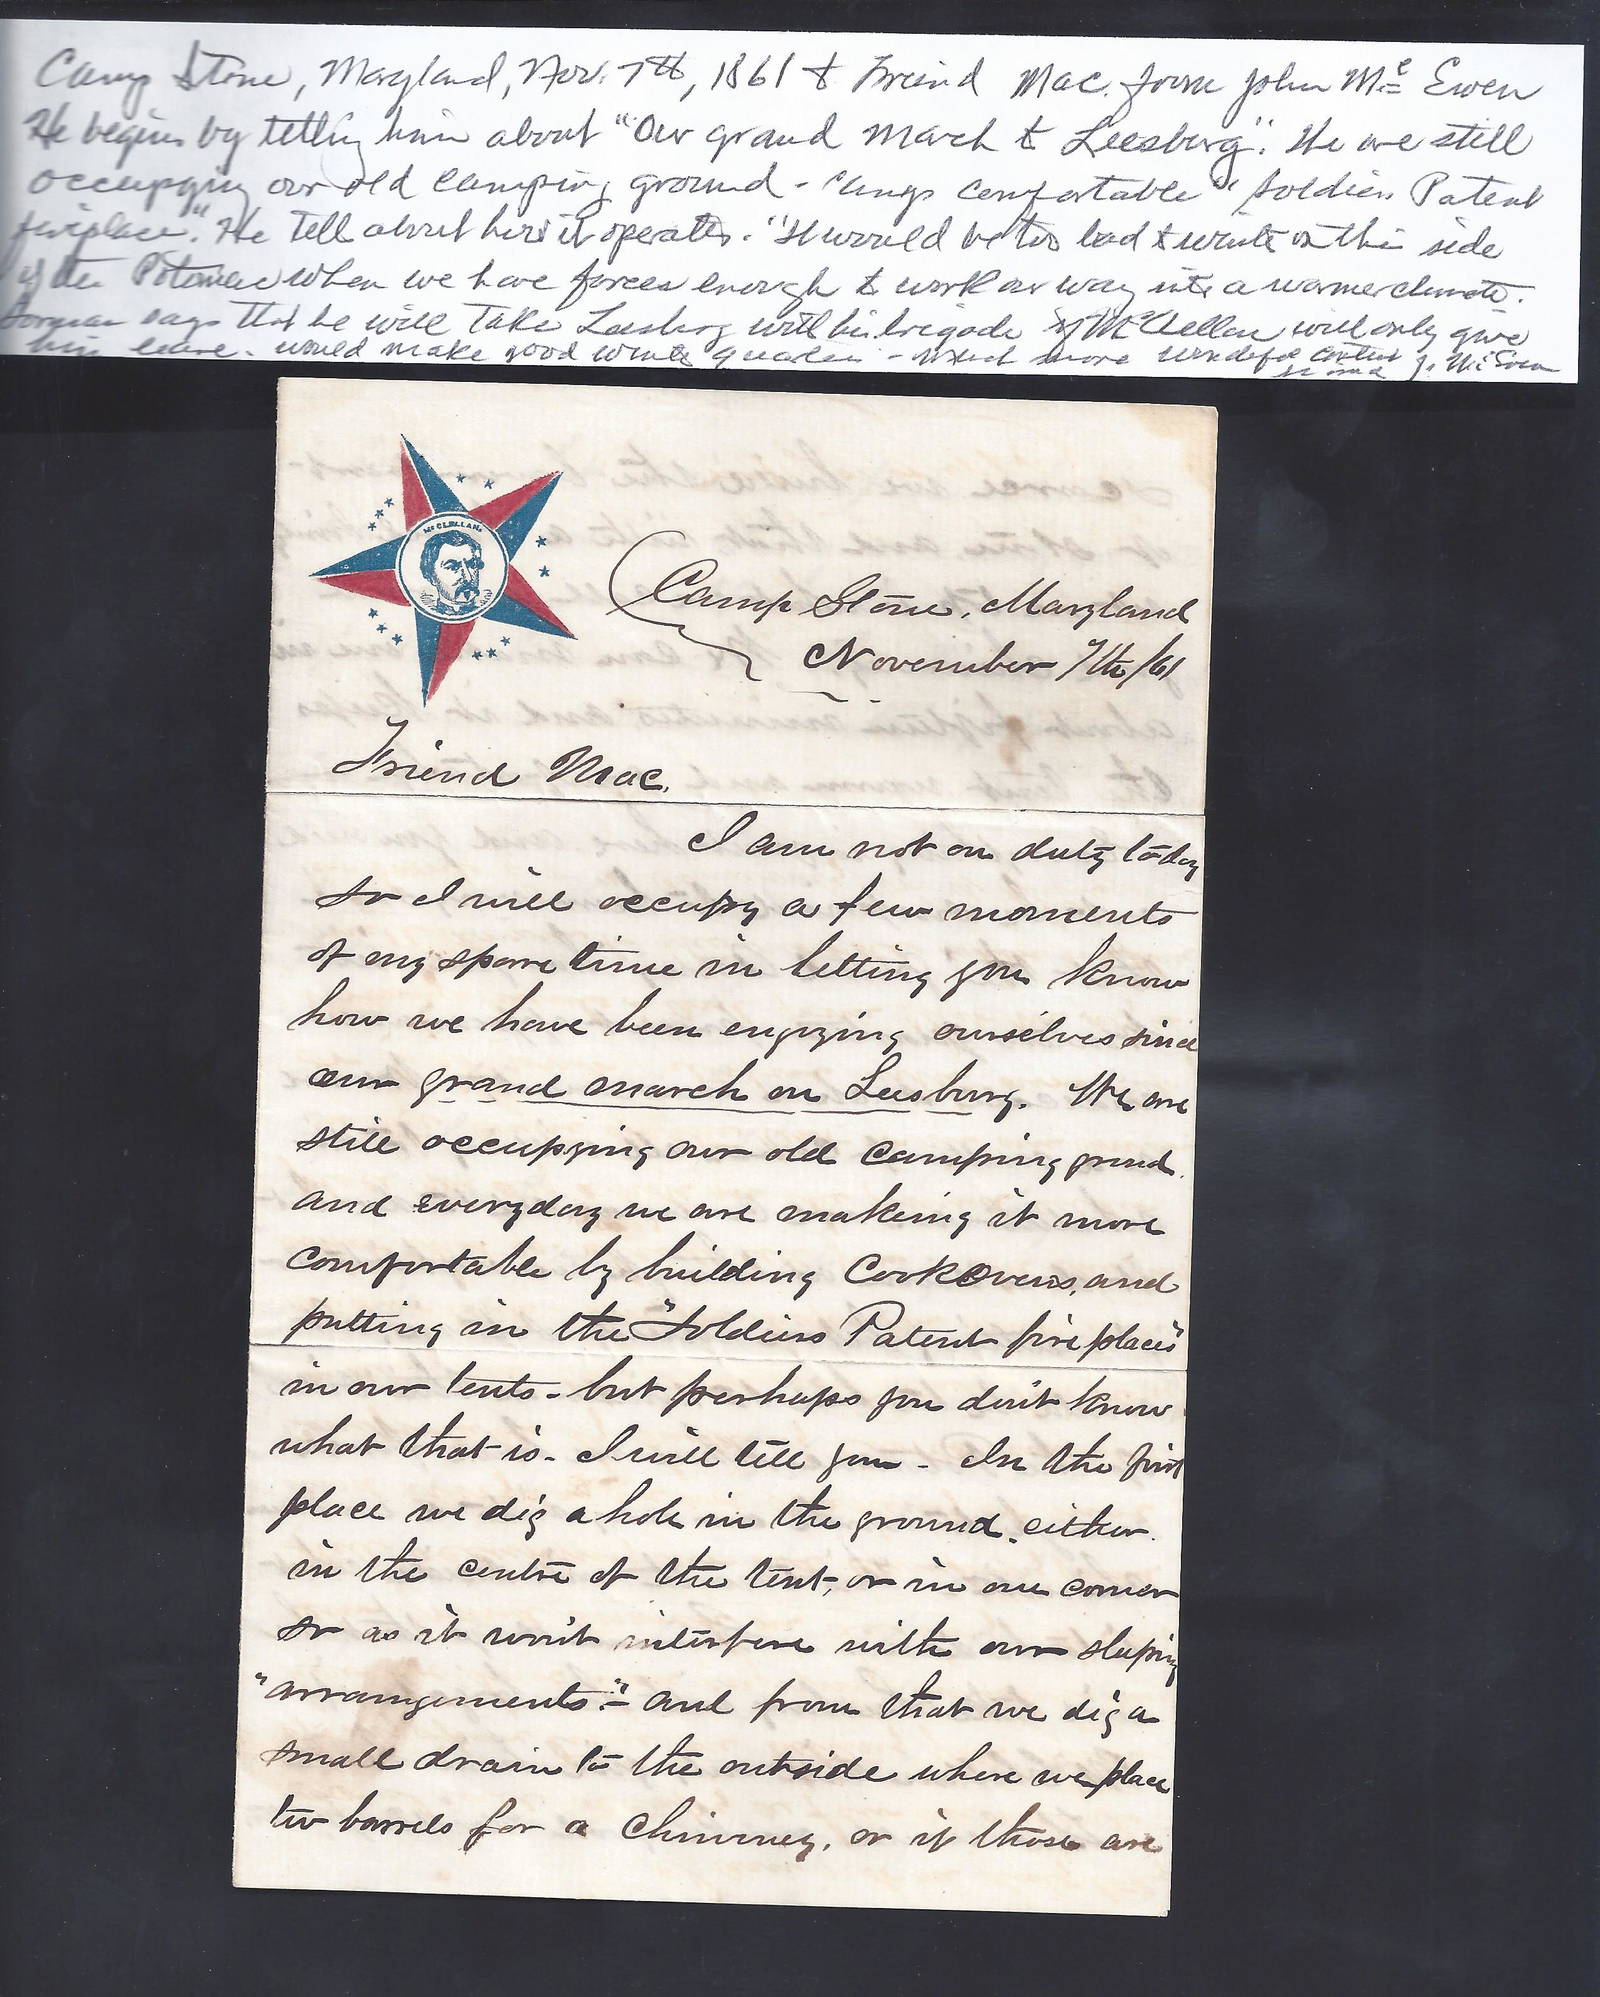 Camp Stone, Maryland, Nov. 7th, 1861 to Friend Mac. from John Mc Ewen
He begins by telling him about "Our grand march to Leesburg". We are still
occupying our old camping ground - comfortable "Soldiers Patent
fireplace." He tell about how it operates. "It would be too bad to winter on this side
of the Potomac when we have forces enough to work our way into a warmer climate.
Gorman says that he will take Leesburg with his brigade if McClellan will only give
him leave. would make good winter quarters - much more wonderful content J. McEwen
McCLELLAN
Camp Stone, Maryland
November 7th/61
Friend Mac.
I am not on duty to day
so I will occupy a few moments
of my spare time in letting you know
how we have been enjoying ourselves since
our grand march on Leesburg. We are
still occupying our old camping ground.
and everyday we are making it more
comfortable by building Cook Ovens, and
putting in the "Soldiers Patent fire places"
in our tents - but perhaps you don't know
what that is - I will tell you - In the first
place we dig a hole in the ground, either
in the centre of the tent, or in one corner
so as it won't interfere with our sleeping
"arrangements" - and from that we dig a
small drain to the outside where we place
two barrels for a Chimney, or if those are